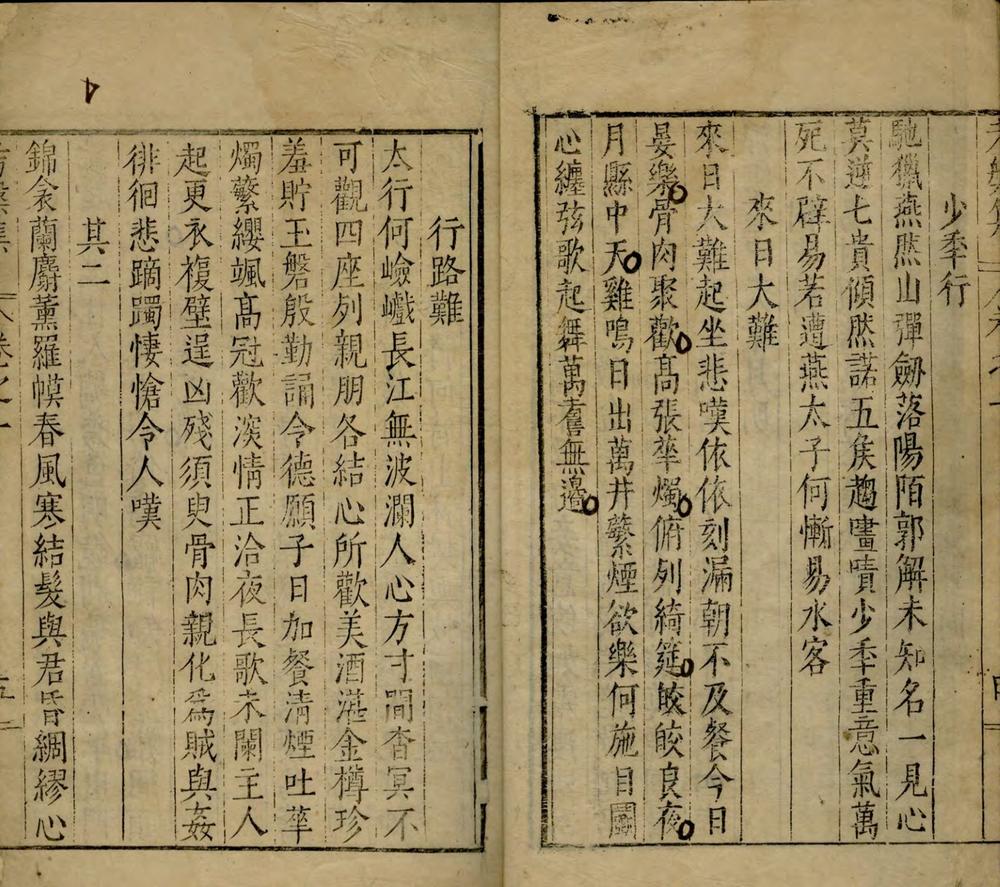 少季行
馳獵燕然山彈劒落陽陌郭解未知名一見心
莫逆七貴傾然諾五矦趨畫嘖少季重意氣萬
死不辟易若遭燕太子何慚易水客
來日大難
來日大難起坐悲嘆依依刻漏朝不及餐今日
晏樂骨肉聚歡高張華燭俯列綺筵皎皎良夜
月縣中天雞鳴日出萬井蘩煙欲樂何施目圖
心纏弦歌起舞萬耊無邊
行路難
太行何嶮巇長江無波瀾人心方寸間杳冥不
可觀四座列親朋各結心所歡美酒湛金樽珍
羞貯玉磐殷勤誦令德願子日加餐清煙吐華
燭蘩纓颯高冠歡深情正洽夜長歌未闌主人
起更衣複壁逞凶殘須臾骨肉親化爲賊與姦
徘徊悲蹢躅悽愴令人嘆
其二
錦衾蘭麝薰羅幙春風寒結髮與君昏綢繆心